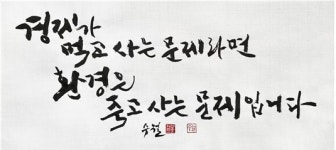 경제가
먹고 사는 문제라면
환경은
죽고 사는 문제입니다